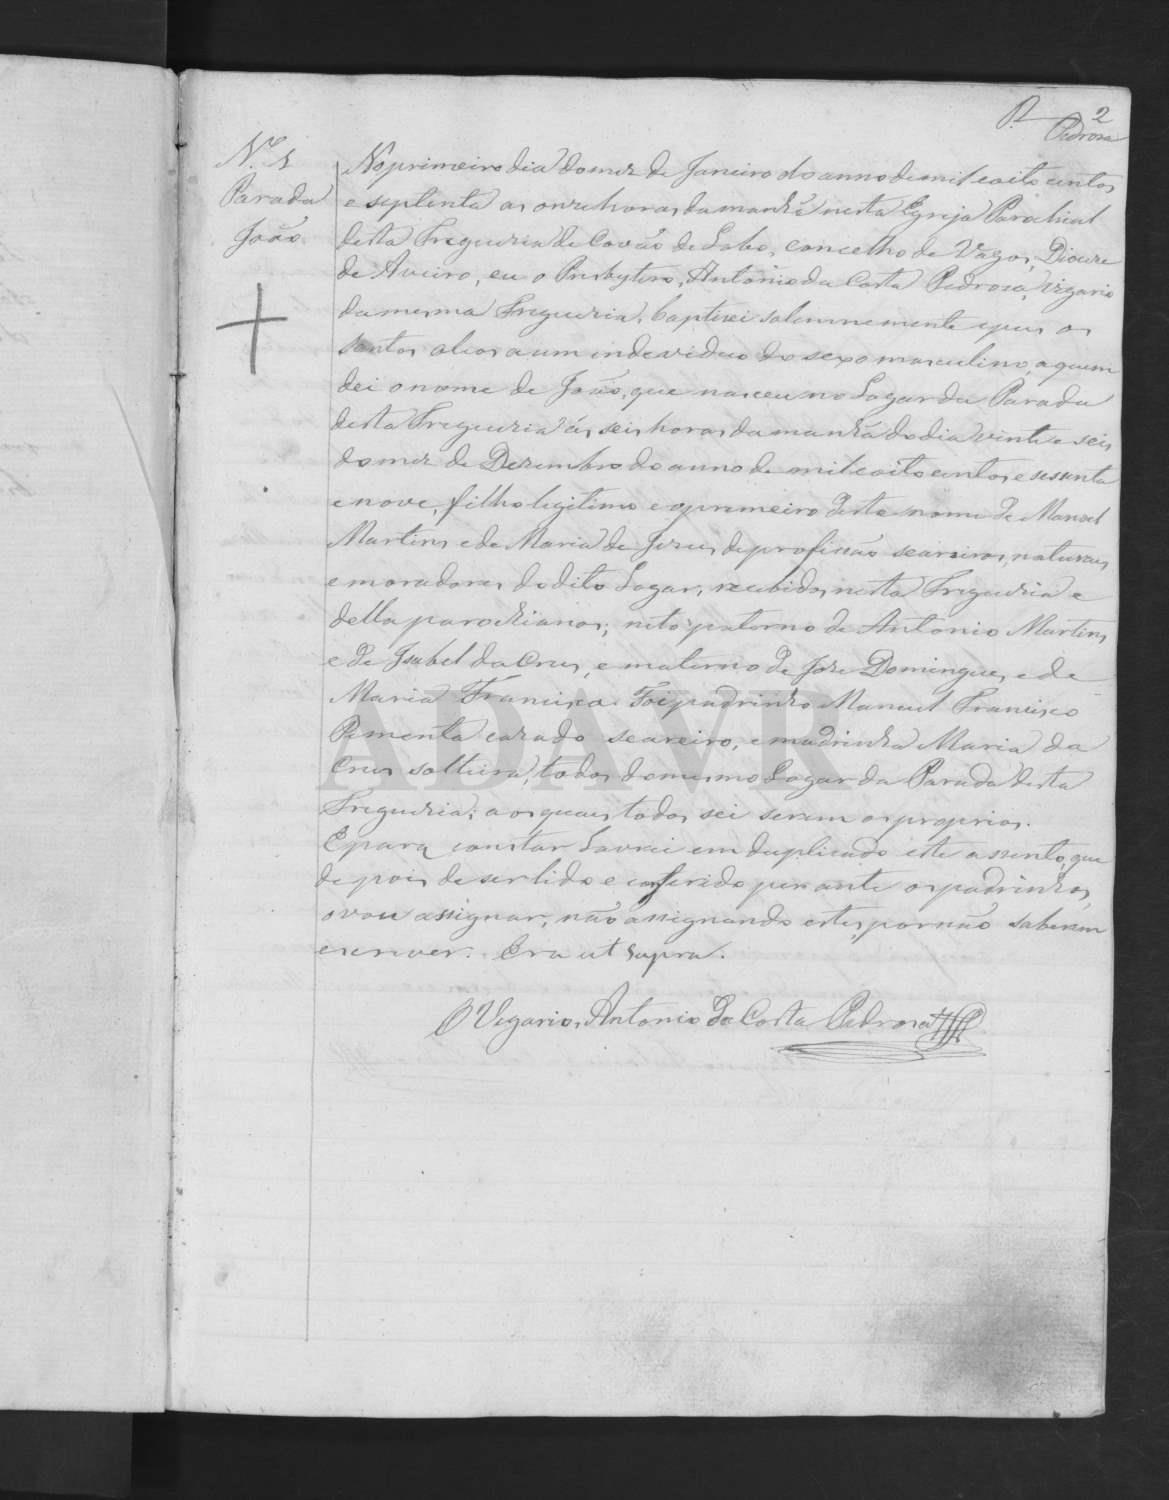 2
Pedrosa
N.º 1
Parada
João
No primeiro dia do mez de Janeiro do anno de mil e oito centos
e septenta as onze horas da manhã nesta Egreja Parochial
desta Freguezia de Covão de Lobo, concelho de Vagos, Diocese
de Aveiro, eu o Presbytero, Antonio da Costa Pedrosa, Vigario
da mesma Freguezia, baptizei solemnemente e puz os
santos oleos a um individuo do sexo masculino, a quem
dei o nome de João, que nasceu no Logar da Parada
desta Freguezia ás seis horas da manhã do dia vinte e seis
do mez de Dezembro do anno de mil e oito centos e sessenta
e nove, filho legitimo e o premeiro deste nome de Manoel
Martins e de Maria de Jezus, de profissão seareiros, naturaes
e moradores do dito Logar, recebidos nesta Freguezia e
della parochianos; neto paterno de Antonio Martins
e de Isabel da Cruz, e materno de Joze Domingues, e de
Maria Francisca. Foi padrinho Manuel Francisco
Pimenta cazado seareiro, e madrinha Maria da
Cruz solteira, todos do mesmo Logar da Parada desta
Freguezia; a os quaes todos sei serem os proprios.
E para constar lavrei em duplicado este assento, que
depois de ser lido e conferido perante os padrinhos,
o vou assignar, não assignando estes, por não saberem
escrever. Era ut supra.
O Vigario, Antonio da Costa Pedrosa
ADAVR